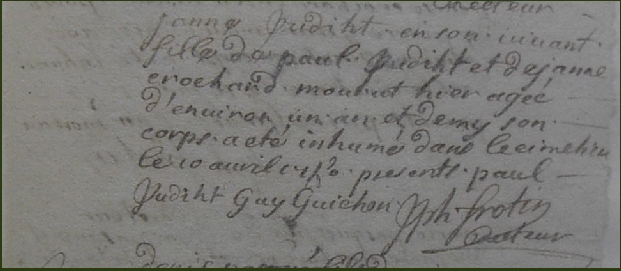 janne Judiht en son vivant
fille de paul Judiht et de janne
crochard mourut hier agée
d'environ un an et demy son
corps a eté inhumé dans le cimetiere
le 10 avril presents paul
Judiht Guy Guichon Jph frotin